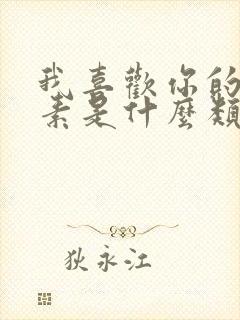 我喜歡你的
素是什麼類
狄永江